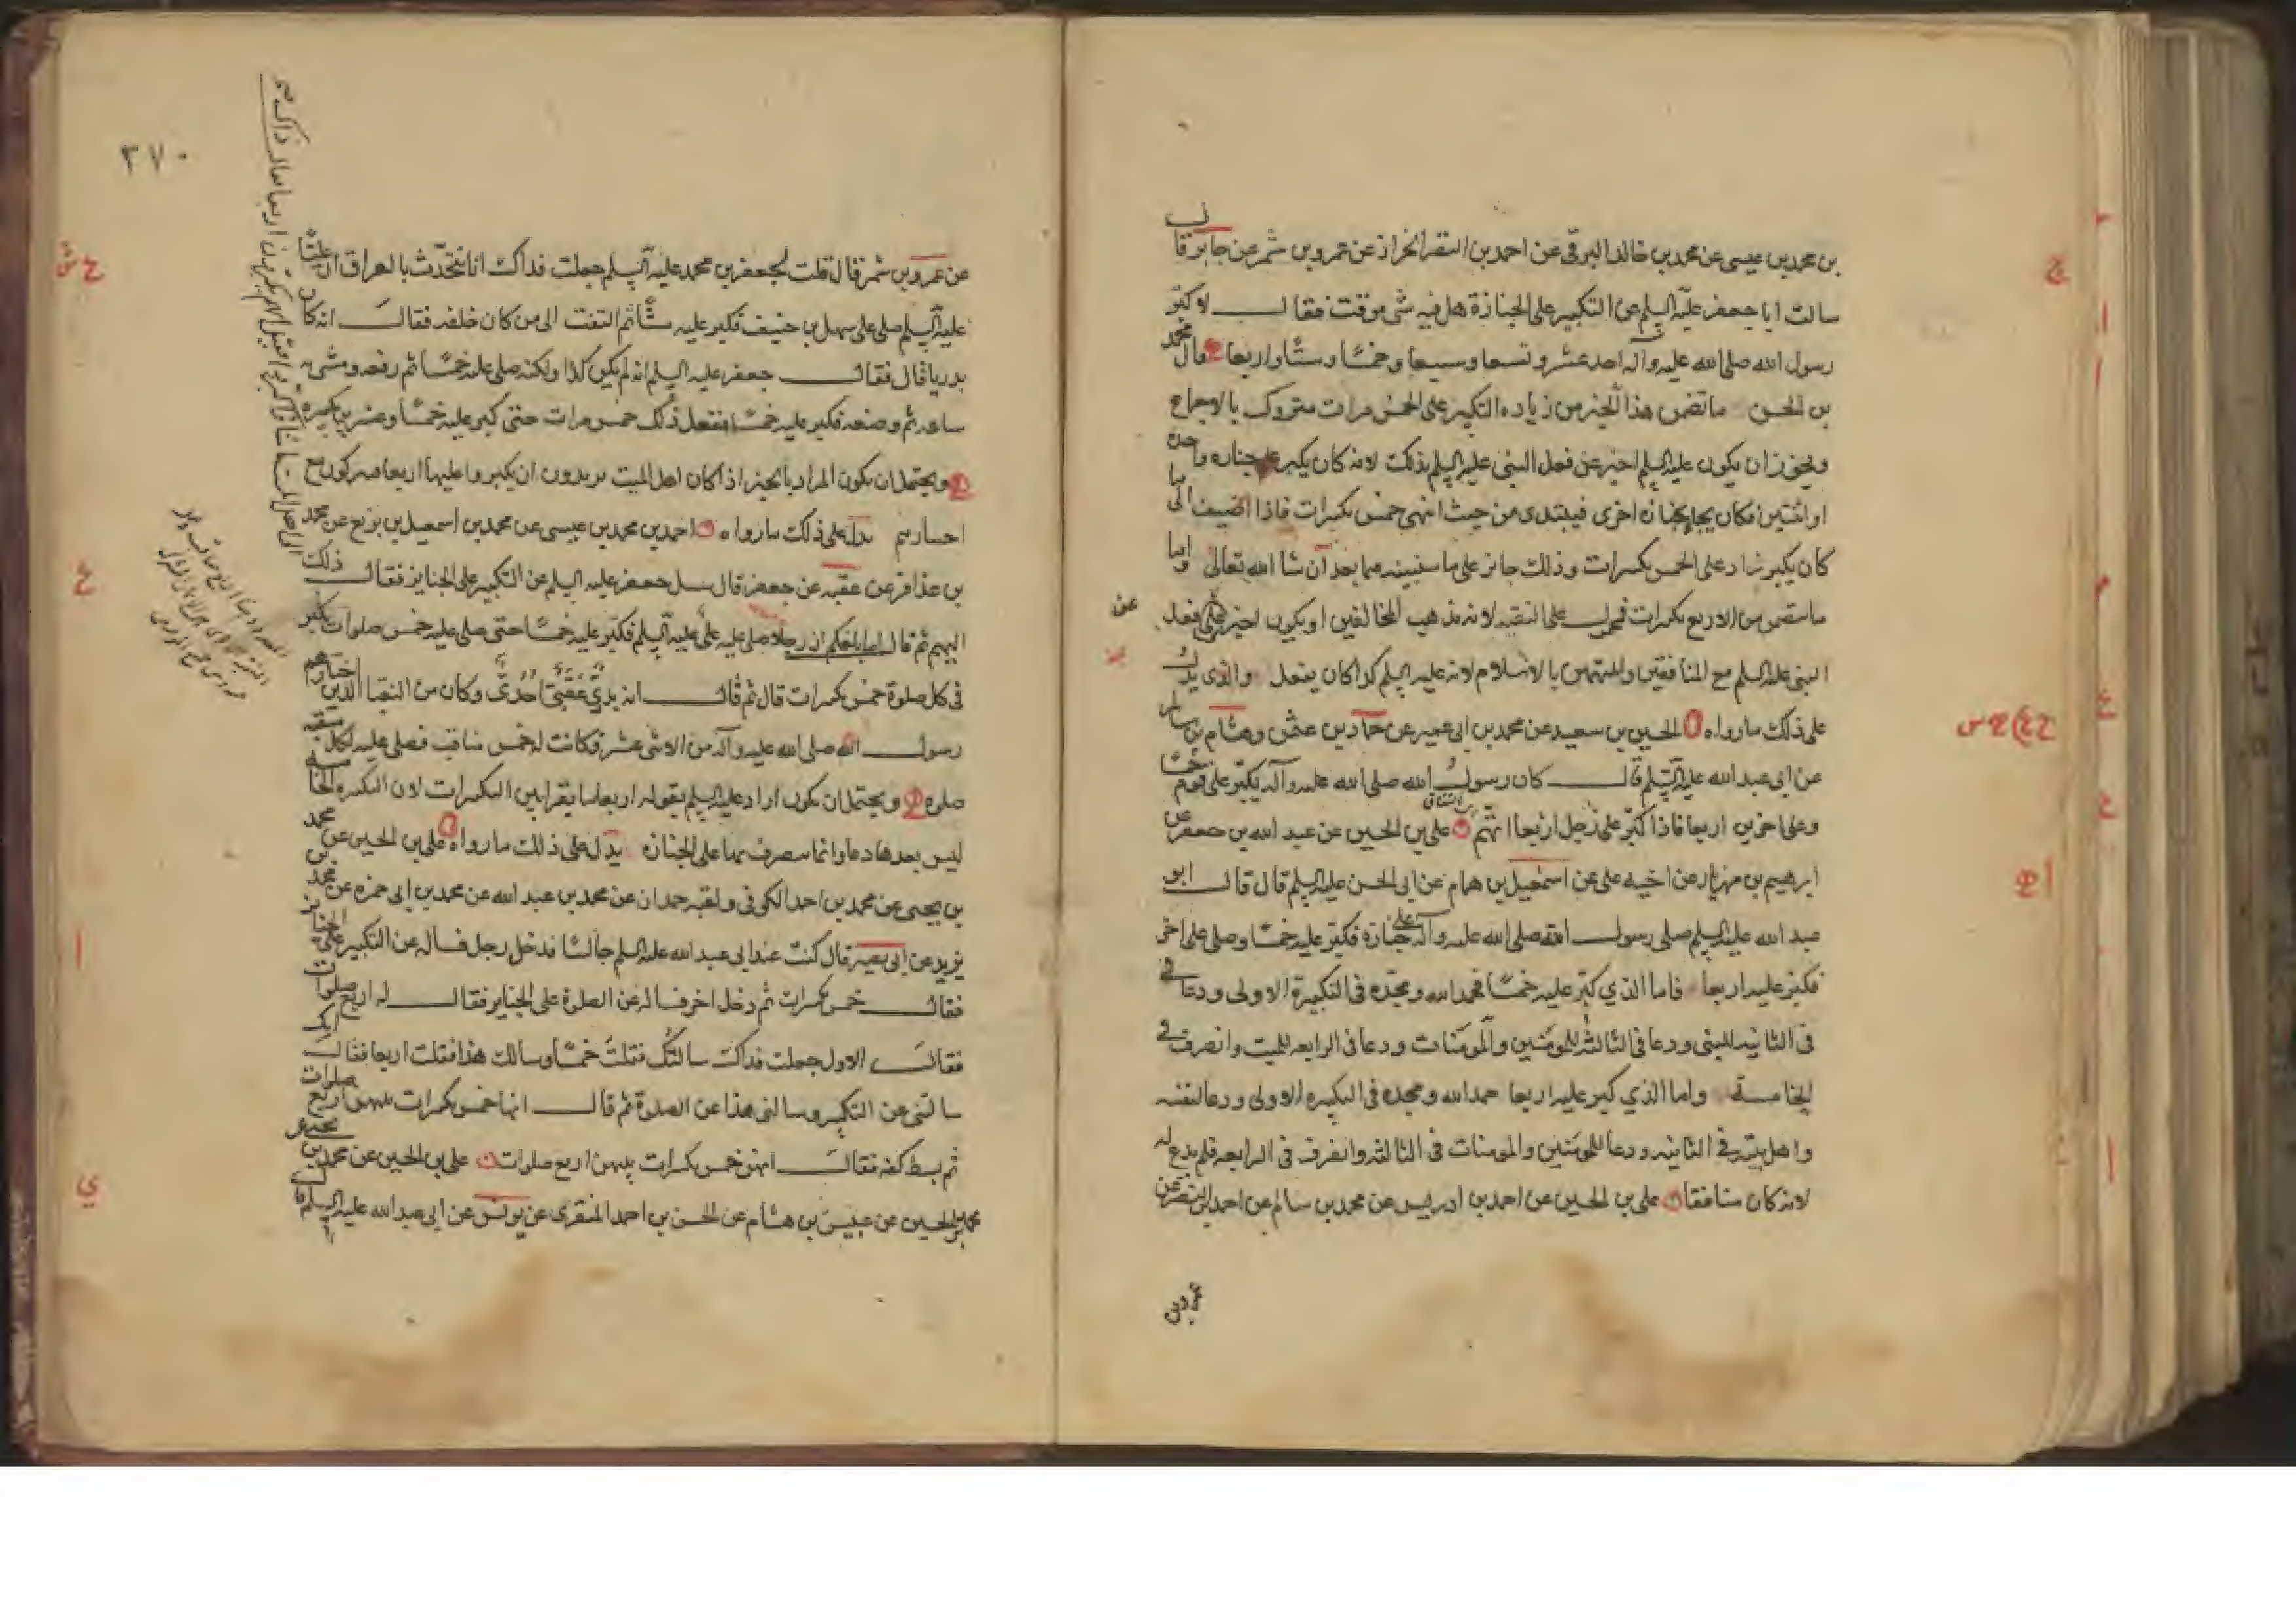 بن محمد بن عيسى عن محمد بن خالد البرقى عن احمد بن النضر الخزاز عن عمرو بن شمر عن جابر قال
سالت ابا جعفر عليه السلم عن التكبير على الجنازة هل فيه شى موقت فقال لا كبر
رسول الله صلى الله عليه وآله احد عشر وتسعا وسبعا وخمسًا وستًا واربعا قال محمد
بن الحسن ما تضمن هذا الخبر من زياده التكبير على الخمس مرات متروك بالاجماع
ويجوز ان يكون عليه السلم اخبر عن فعل النبى عليه السلم بذلك لانه كان يكبر على جنازه واحدة
او اثنتين فكان يجاء بجنازه اخرى فيبتدى من حيث انتهى خمس تكبيرات فاذا اضيف الى ما
كان يكبر زاد على الخمس تكبيرات وذلك جايز على ما سنبينه فيما بعد ان شا الله تعالى واما
ما يتضمن من الاربع تكبيرات فمحمول على التقيه لانه مذهب المخالفين او يكون اخبر عن فعل
النبى عليه السلم مع المنافقين والمتهمين بالاسلام لانه عليه السلم كذا كان يفعل والذى يدل
على ذلك ما رواه الحسين بن سعيد عن محمد بن ابى عمير عن حماد بن عثمن وهشام بن سالم
عن ابى عبد الله عليه السلم قال كان رسول الله صلى الله عليه وآله يكبر على قوم خمسًا
وعلى اخرين اربعا فاذا كبر على رجل اربعا اتهم على بن الحسين عن عبد الله بن جعفر عن
ابرهيم بن مهزيار عن اخيه على عن اسمعيل بن همام عن ابى الحسن عليه السلم قال قال ابو
عبد الله عليه السلم صلى رسول الله صلى الله عليه وآله على جنازة فكبر عليه خمسًا وصلى على اخر
فكبر عليه اربعا فاما الذي كبر عليه خمسًا فحمد الله ومجده فى التكبيرة الاولى ودعا
فى الثانيه للنبى ودعا فى الثالثه للمومنين والمومنات ودعا فى الرابعه للميت وانصرف فى
الخامسة واما الذي كبر عليه اربعا حمد الله ومجده فى التكبيره الاولى ودعا لنفسه
واهل بيته فى الثانيه ودعا للمومنين والمومنات فى الثالثه وانصرف فى الرابعه فلم يدع له
لانه كان منافقا على بن الحسين عن احمد بن ادريس عن محمد بن سالم عن احمد بن النضر عن
٣٧٠
عن عمرو بن شمر قال قلت لجعفر بن محمد عليه السلم جعلت فداك انا نتحدث بالعراق ان عليًا
عليه السلم صلى على سهل بن حنيف فكبر عليه ستًا ثم التفت الى من كان خلفه فقال انه كان
بدريا قال فقال جعفر عليه السلم انه لم يكن كذا ولكنه صلى عليه خمسًا ثم رفعه ومشى به
ساعه ثم وضعه فكبر عليه خمسًا ففعل ذلك خمس مرات حتى كبر عليه خمسًا وعشرين تكبيرة
ويحتمل ان يكون المراد بالخبر اذا كان اهل الميت يريدون ان يكبروا عليها اربعا فيتركون مع
اختيارهم يدل على ذلك ما رواه احمد بن محمد بن عيسى عن محمد بن اسمعيل بن بزيع عن محمد
بن عذافر عن عقبه عن جعفر قال سئل جعفر عليه السلم عن التكبير على الجنايز فقال ذلك
اليهم ثم قال اما بلغكم ان رجلا صلى عليه على عليه السلم فكبر عليه خمسًا حتى صلى عليه خمس صلوات يكبر
فى كل صلوة خمس تكبيرات قال ثم قال انه بدرىٌ عقبىٌ احدىٌ وكان من النقبا الذين اختارهم
رسول الله صلى الله عليه وآله من الاثنى عشر فكانت له خمس مناقب فصلى عليه لكل منقبه
صلوه ويحتمل ان يكون اراد عليه السلم بقوله اربعا ما يقرا بين التكبيرات لان التكبيره الخامسه
ليس بعدها دعا وانما ينصرف بها على الجنازه يدل على ذلك ما رواه على بن الحسين عن محمد
بن يحيى عن محمد بن احمد الكوفى ولقبه حمدان عن محمد بن عبد الله عن محمد بن ابى حمزه عن محمد بن
يزيد عن ابى بصير قال كنت عند ابى عبد الله عليه السلم جالسًا فدخل رجل فساله عن التكبير على الجنايز
فقال خمس تكبيرات ثم دخل اخر فساله عن الصلوة على الجنايز فقال له اربع صلوات
فقال الاول جعلت فداك سالتك فقلت خمسًا وسالك هذا فقلت اربعا فقال انك
سالتنى عن التكبير وسالنى هذا عن الصلوة ثم قال انها خمس تكبيرات بينهن اربع صلوات
ثم بسط كفه فقال انهن خمس تكبيرات بينهن اربع صلوات على بن الحسين عن محمد بن يحيى عن
محمد بن الحسين عن عبيس بن هشام عن الحسن بن احمد المنقرى عن يونس عن ابى عبد الله عليه السلم قال